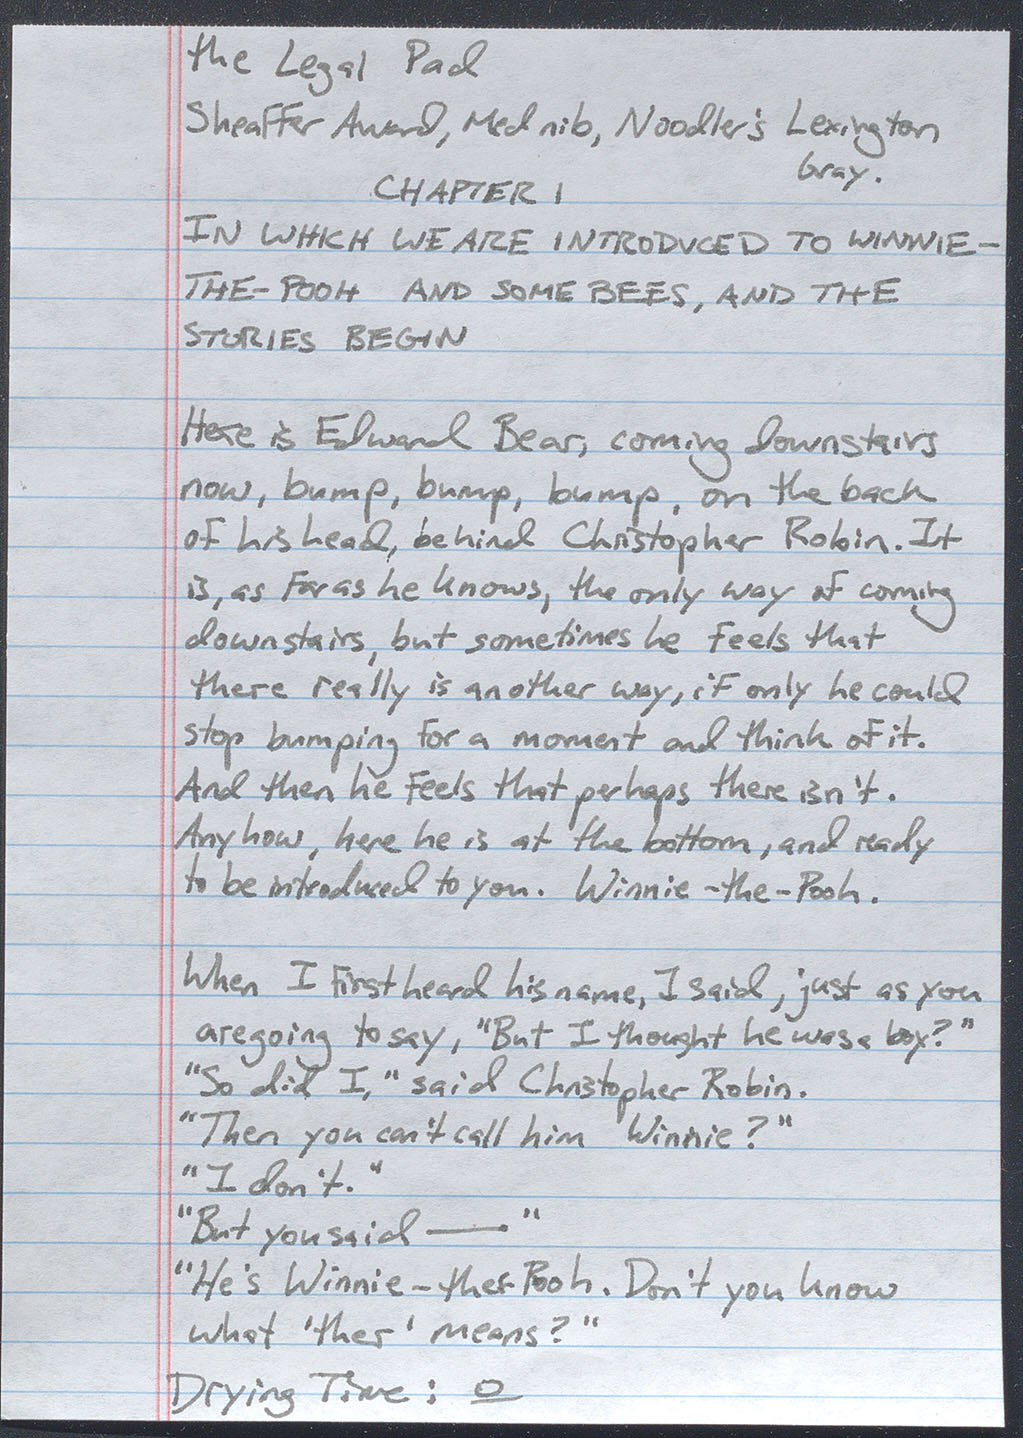 the Legal Pad
Sheaffer Award, Med nib, Noodler's Lexington
Gray.
CHAPTER 1
IN WHICH WE ARE INTRODUCED TO WINNIE-
THE-POOH AND SOME BEES, AND THE
STORIES BEGIN
Here is Edward Bear, coming downstairs
now, bump, bump, bump, on the back
of his head, behind Christopher Robin. It
is, as far as he knows, the only way of coming
downstairs, but sometimes he feels that
there really is another way, if only he could
stop bumping for a moment and think of it.
And then he feels that perhaps there isn't.
Anyhow, here he is at the bottom, and ready
to be introduced to you. Winnie-the-Pooh.
When I first heard his name, I said, just as you
are going to say, "But I thought he was a boy?"
"So did I," said Christopher Robin.
"Then you can't call him Winnie?"
"I don't."
"But you said —"
"He's Winnie-ther-Pooh. Don't you know
what 'ther' means?"
Drying Time: 0